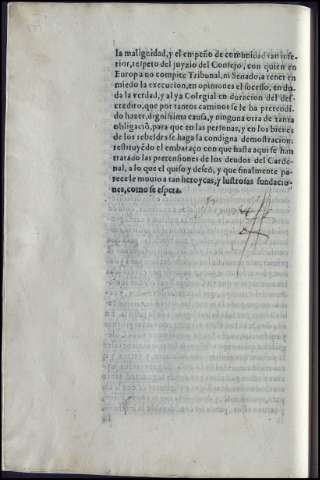 la malignidad, y el empeño de comunidad tan infe-
rior, respeto del juyzio del Consejo, con quien en
Europa no compite Tribunal, ni Senado, a tener en
miedo la execucion, en opiniones el sucesso, en du-
da la verdad, y al ya Colegial en duracion del des-
credito, que por tantos caminos se le ha pretendi-
do hazer, dignissima causa, y ninguna otra de tanta
obligaciõ, para que en las personas, y en los bienes
de los rebeldes se haga la condigna demostracion;
restituyẽdo el embaraço con que hasta aqui se han
tratado las pretensiones de los deudos del Carde-
nal, a lo que el quiso y deseó, y que finalmente pa-
rece le mouio a tan heroycas, y lustrosas fundacio-
nes, como se espera.